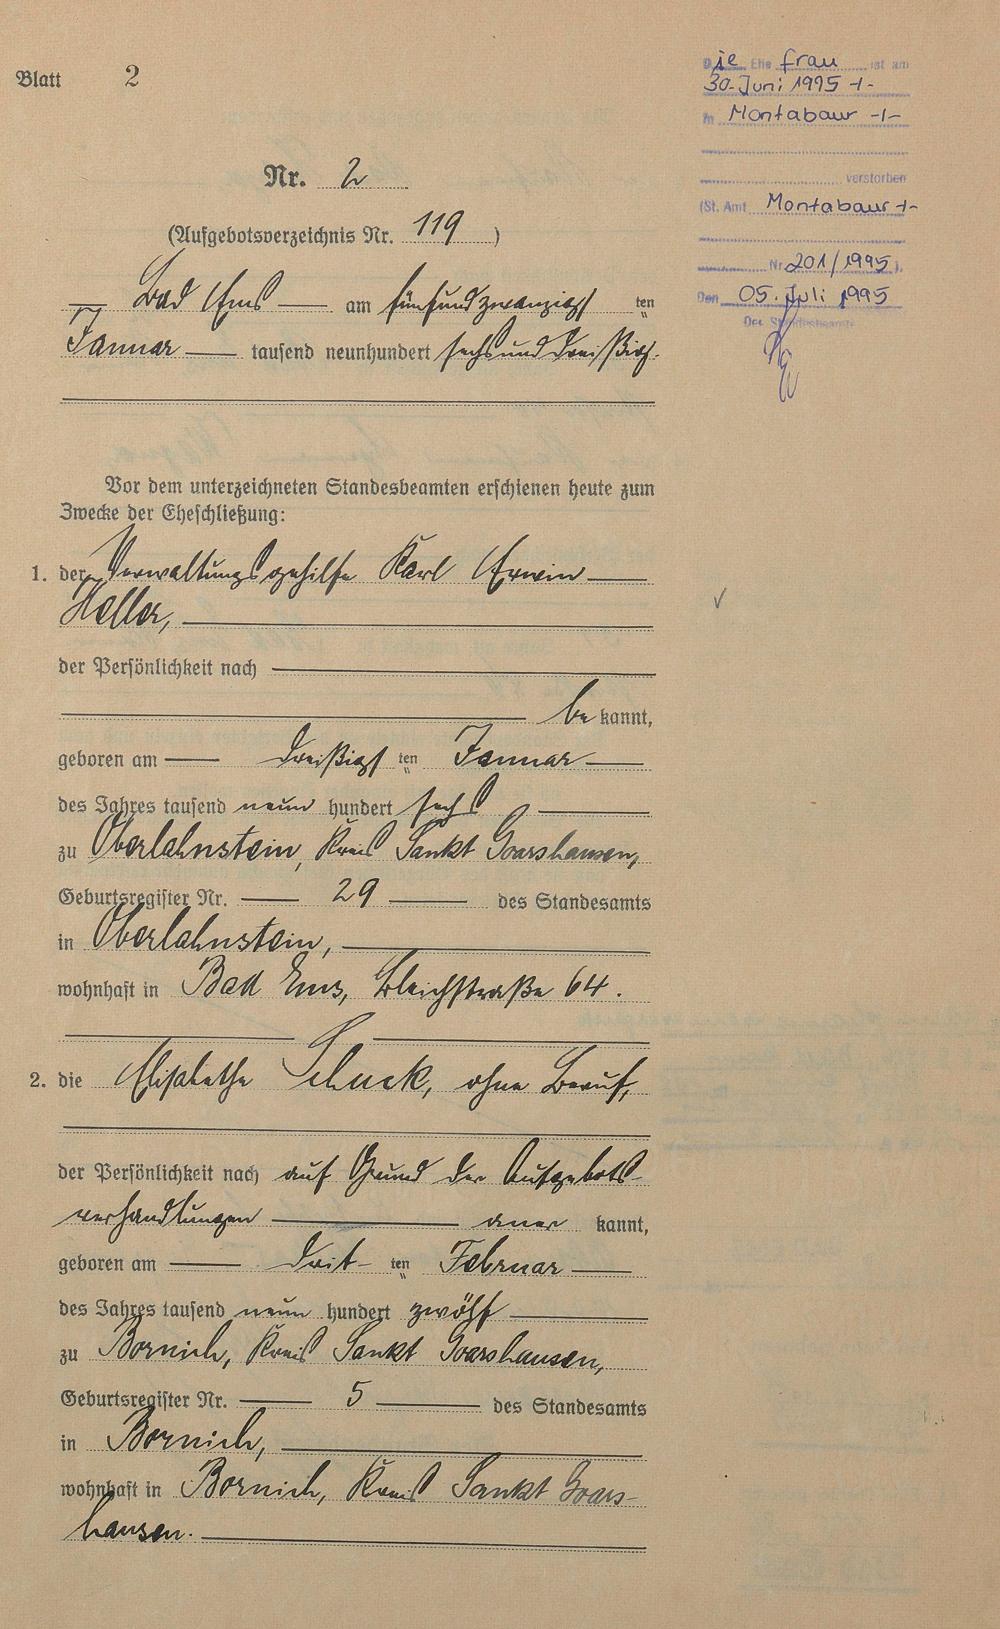 Blatt 2
Nr. 2
(Aufgebotsverzeichnis Nr. 119)
Bad Ems am fünfundzwanzigsten
Januar tausend neunhundert sechsunddreißig.
Vor dem unterzeichneten Standesbeamten erschienen heute zum
Zwecke der Eheschließung:
1. der Verwaltungsgehilfe Karl Erwin
Heller,
der Persönlichkeit nach
be kannt,
geboren am dreißigsten Januar
des Jahres tausend neun hundert sechs
zu Oberlahnstein, Kreis Sankt Goarshausen,
Geburtsregister Nr. 29 des Standesamts
in Oberlahnstein,
wohnhaft in Bad Ems, Bleichstraße 64.
2. die Elisabethe Schuck, ohne Beruf,
der Persönlichkeit nach auf Grund der Aufgebots-
verhandlungen aner kannt,
geboren am dritten Februar
des Jahres tausend neun hundert zwölf
zu Bornich, Kreis Sankt Goarshausen,
Geburtsregister Nr. 5 des Standesamts
in Bornich,
wohnhaft in Bornich, Kreis Sankt Goars-
hausen.
Die Ehe frau ist am
30. Juni 1995 -/-
in Montabaur -/-
verstorben
(St. Amt Montabaur -/-
Nr. 201/1995).
Den 05. Juli 1995
Der Standesbeamte